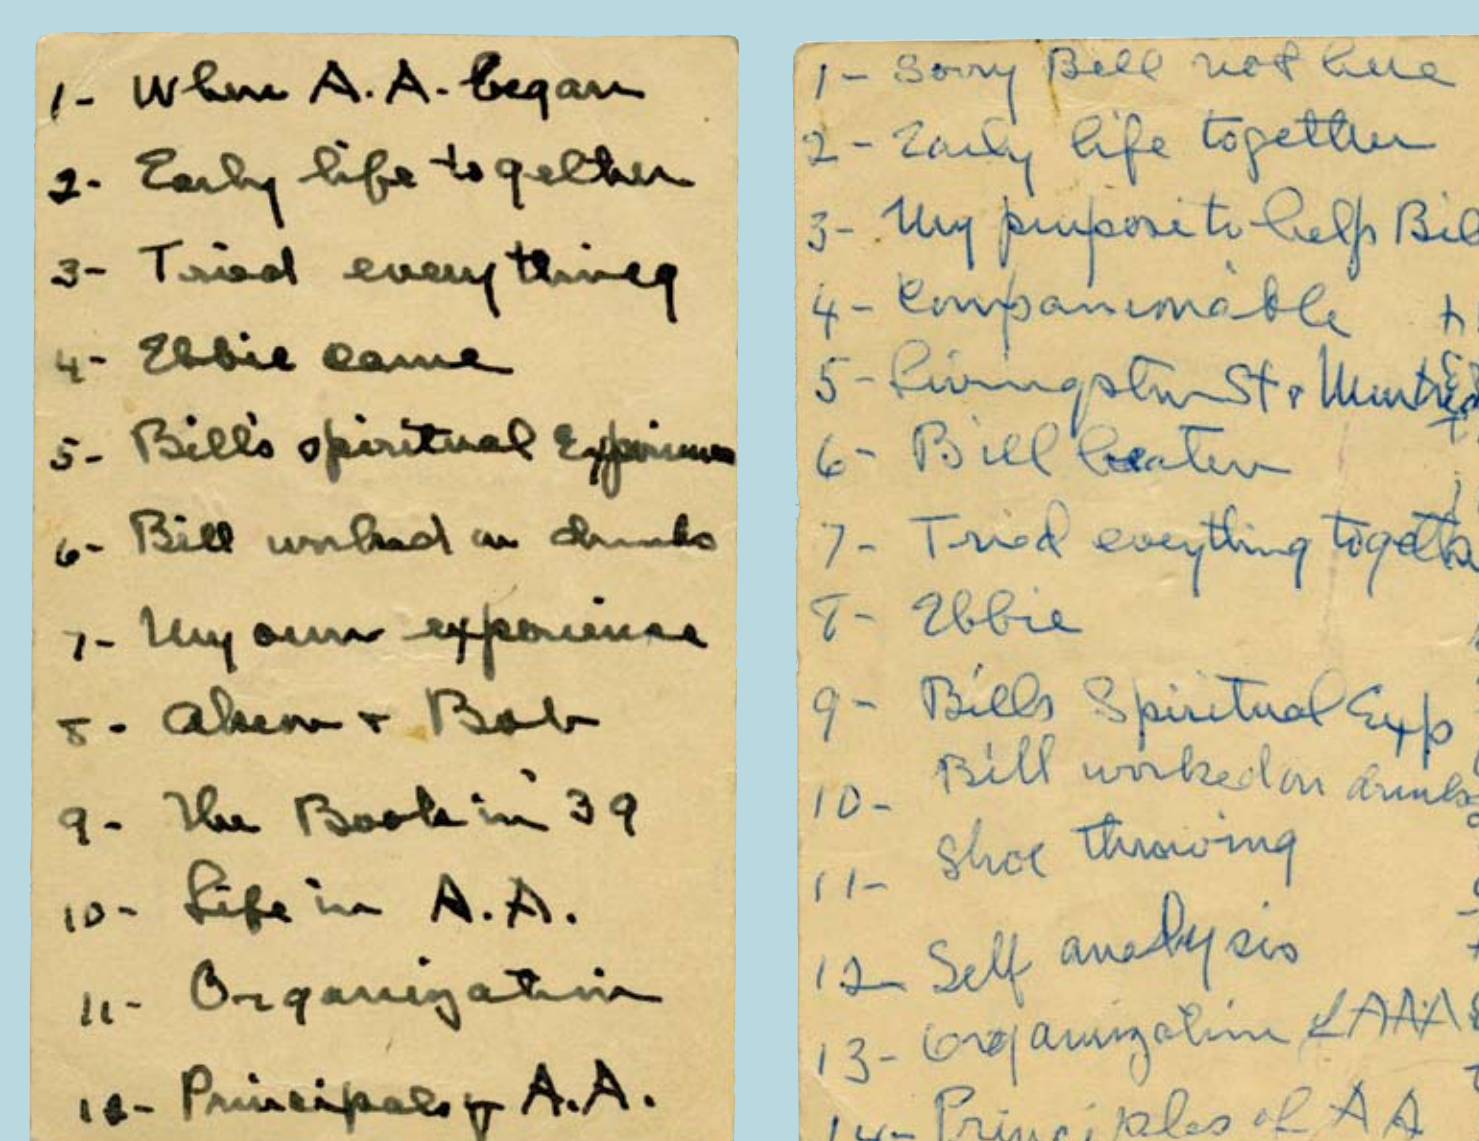 1- When A.A. began
2- Early life together
3- Tried everything
4- Ebbie came
5- Bill's spiritual Experience
6- Bill worked on drunks
7- My own experience
8- Akron + Bob
9- The Book in '39
10- Life in A.A.
11- Organization
12- Principals of A.A.
1- Sorry Bill not here
2- Early life together
3- My purpose to help Bill
4- Companionable
5- Livingston St +
6- Bill beaten
7- Tried eveything together
8- Ebbie
9- Bills Spiritual Exp
10- Bill worked on drunks
11- Shoe throwing
12- Self analysis
13- Organization
14- Principles of AA